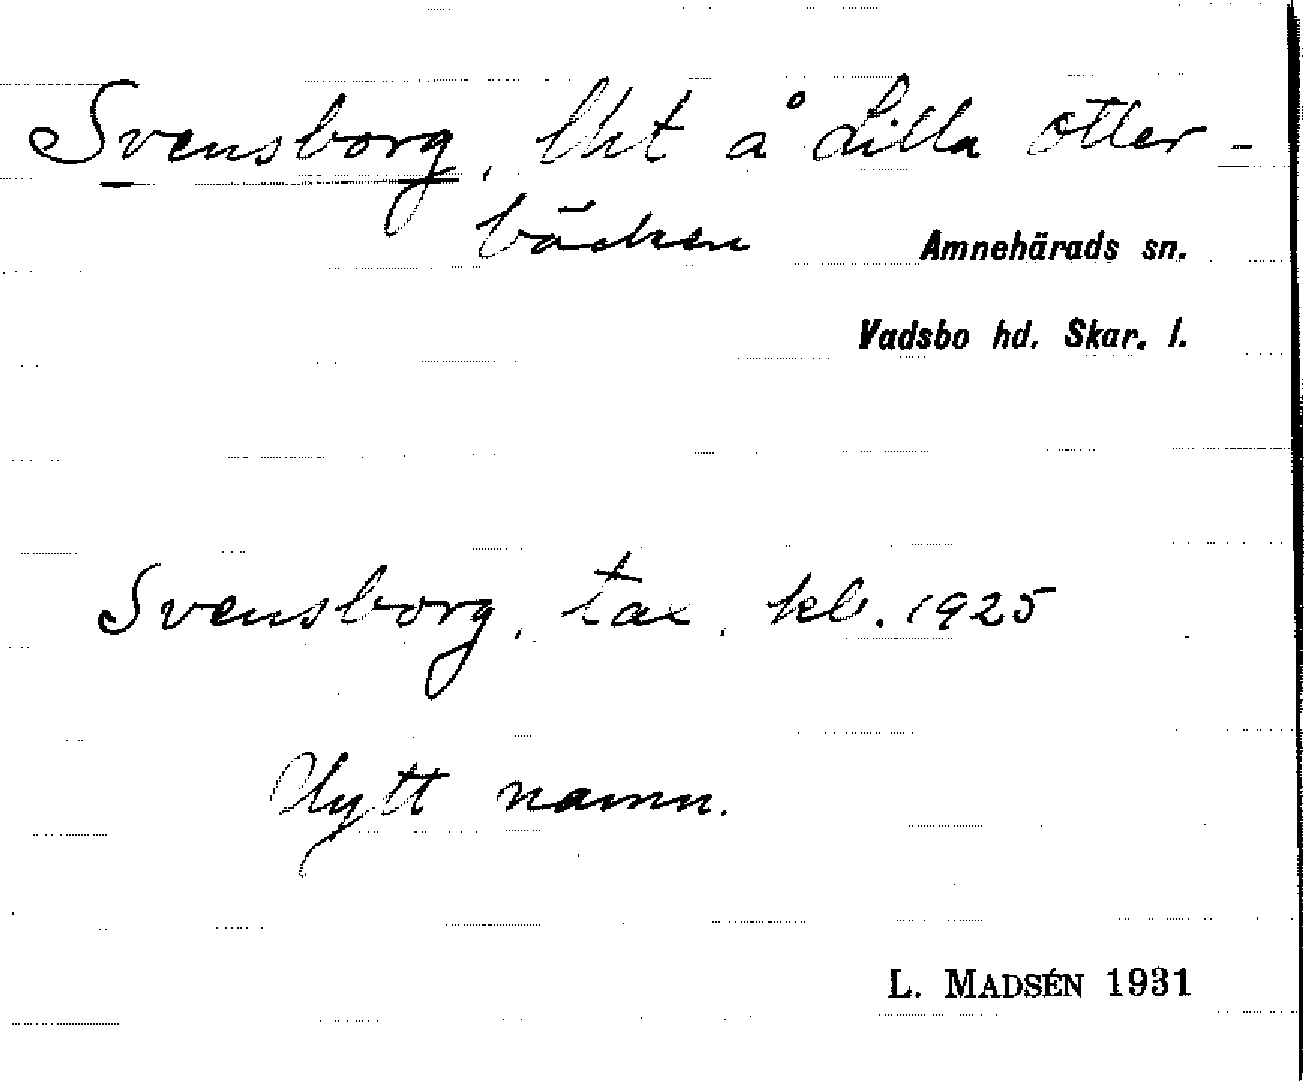 Svensborg, lht å Lilla Otter-
bäcken
Amnehärads sn.
Vadsbo hd. Skar. l.
Svensborg, tax. kb. 1925
Nytt namn.
L. MADSÉN 1931